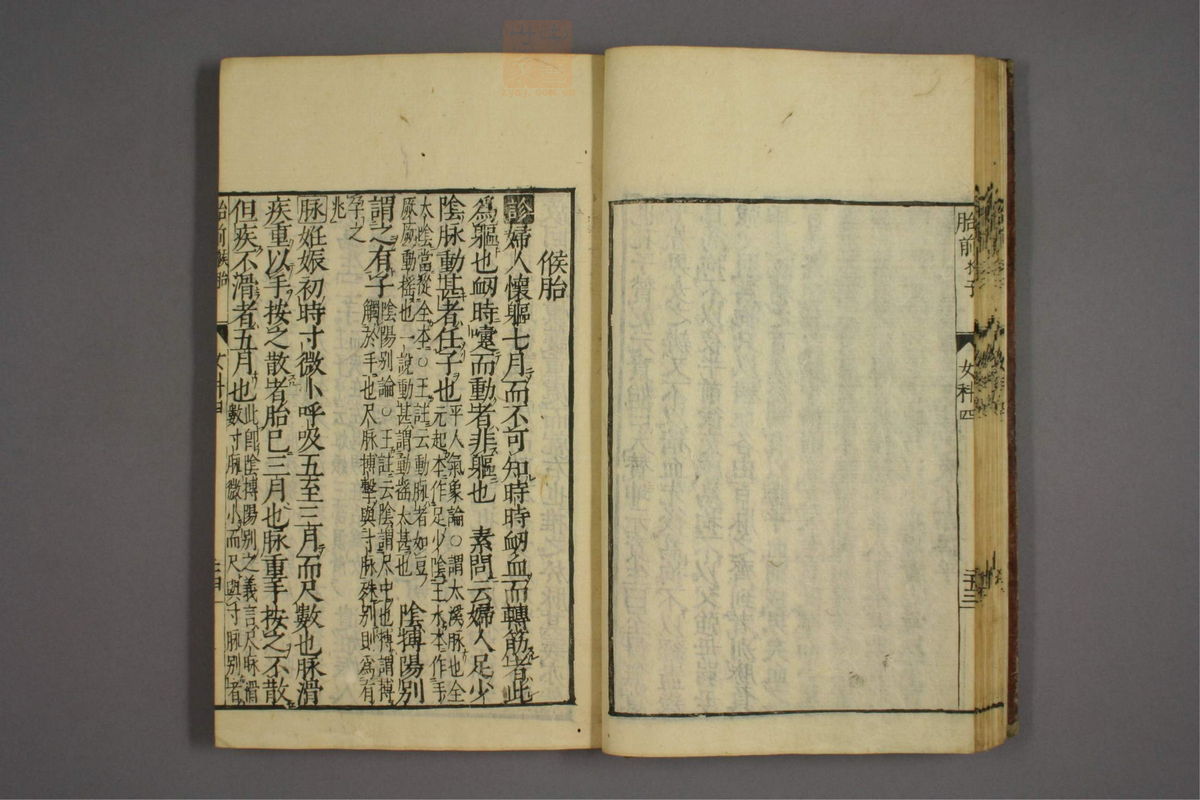 胎前 求子
女科四
三十三
候胎
診婦人懷軀七月而不可知時時衂血而轉筋者此
為軀也衂時嚏而動者非軀也 素問云婦人足少
陰脉動甚者任子也平人氣象論○謂太溪脉也全
元起本作足少陰王氷本作手
太陰當從全本○王註云動脉者如豆
厥厥動搖也一說動甚謂動搖太甚也 陰搏陽別
謂之有子陰陽別論○王註云陰謂尺中也搏謂搏
觸於手也尺脉搏擊與寸脉殊別則為有
孕之
兆
脉姙娠初時寸微小呼吸五至三月而尺數也脉滑
疾重以手按之散者胎已三月也脉重手按之不散
但疾不滑者五月也此即陰搏陽別之義言尺脉滑
數寸脉微小而尺與寸脉別者
胎前候胎
女科四